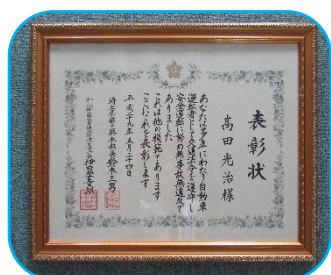 表彰状
高田光治様
あなたは多年にわたり自動車
運転者として交通法令を遵守し
安全運転に努め無事故無違反で
ありました
これは他の模範であります
ここにこれを表彰します
平成二十九年五月二十四日
埼玉県警察本部長 鈴木三男